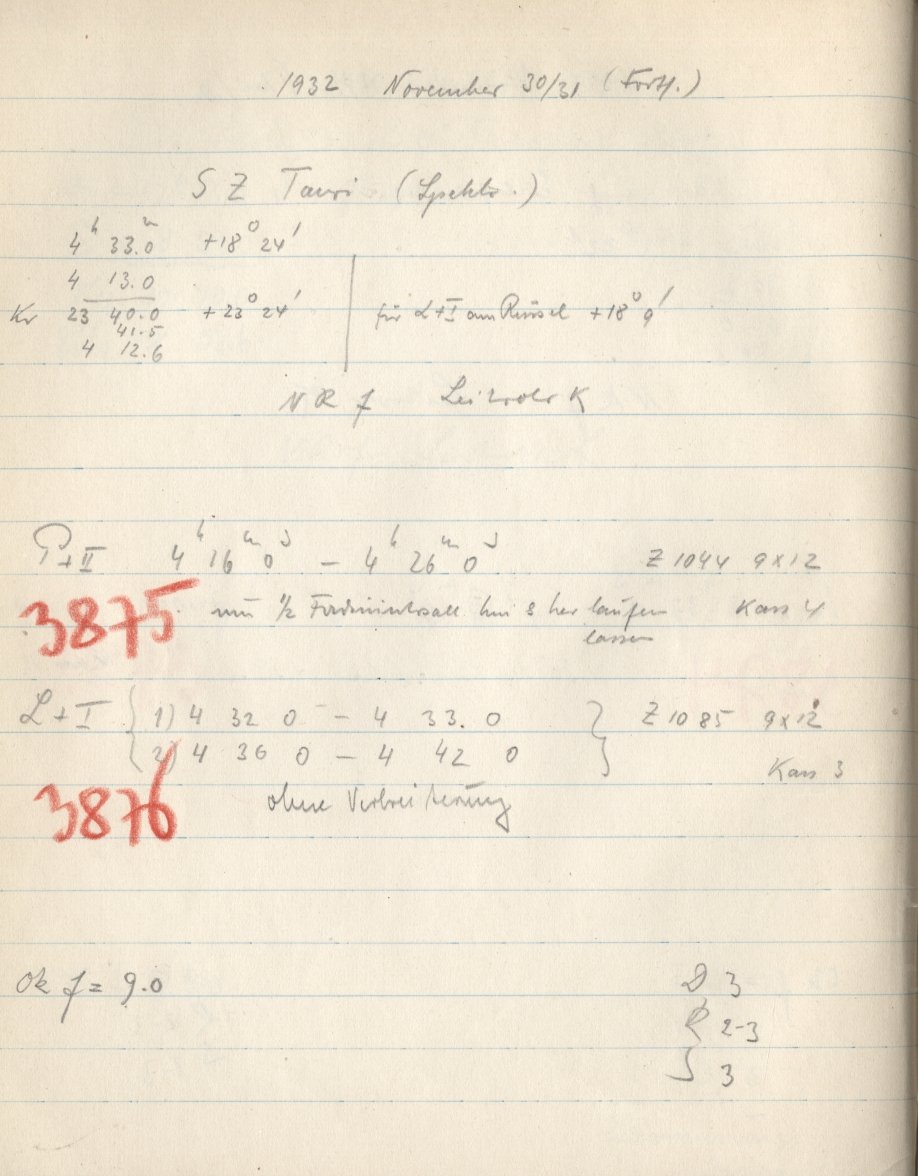 1932 November 30/31 (Forts.)
SZ Tauri (Spektr.)
4ʰ 33.0ᵐ +18° 24'
4 13.0
Kr 23 40.0 +23° 24' für L+I am Rüssel +18° 9'
41.5
4 12.6
NR f Leitrohr K
P+II 4ʰ 16ᵐ 0ˢ – 4ʰ 26ᵐ 0ˢ Z 1044 9x12
3875 1/2 hin & her laufen Kass 4
lassen
L+I { 1) 4 32 0 – 4 33. 0 } Z 1085 9x12
2) 4 36 0 – 4 42 0
Kass 3
3876 ohne Verbreiterung
Ok f = 9.0 D 3
R 2-3
S 3